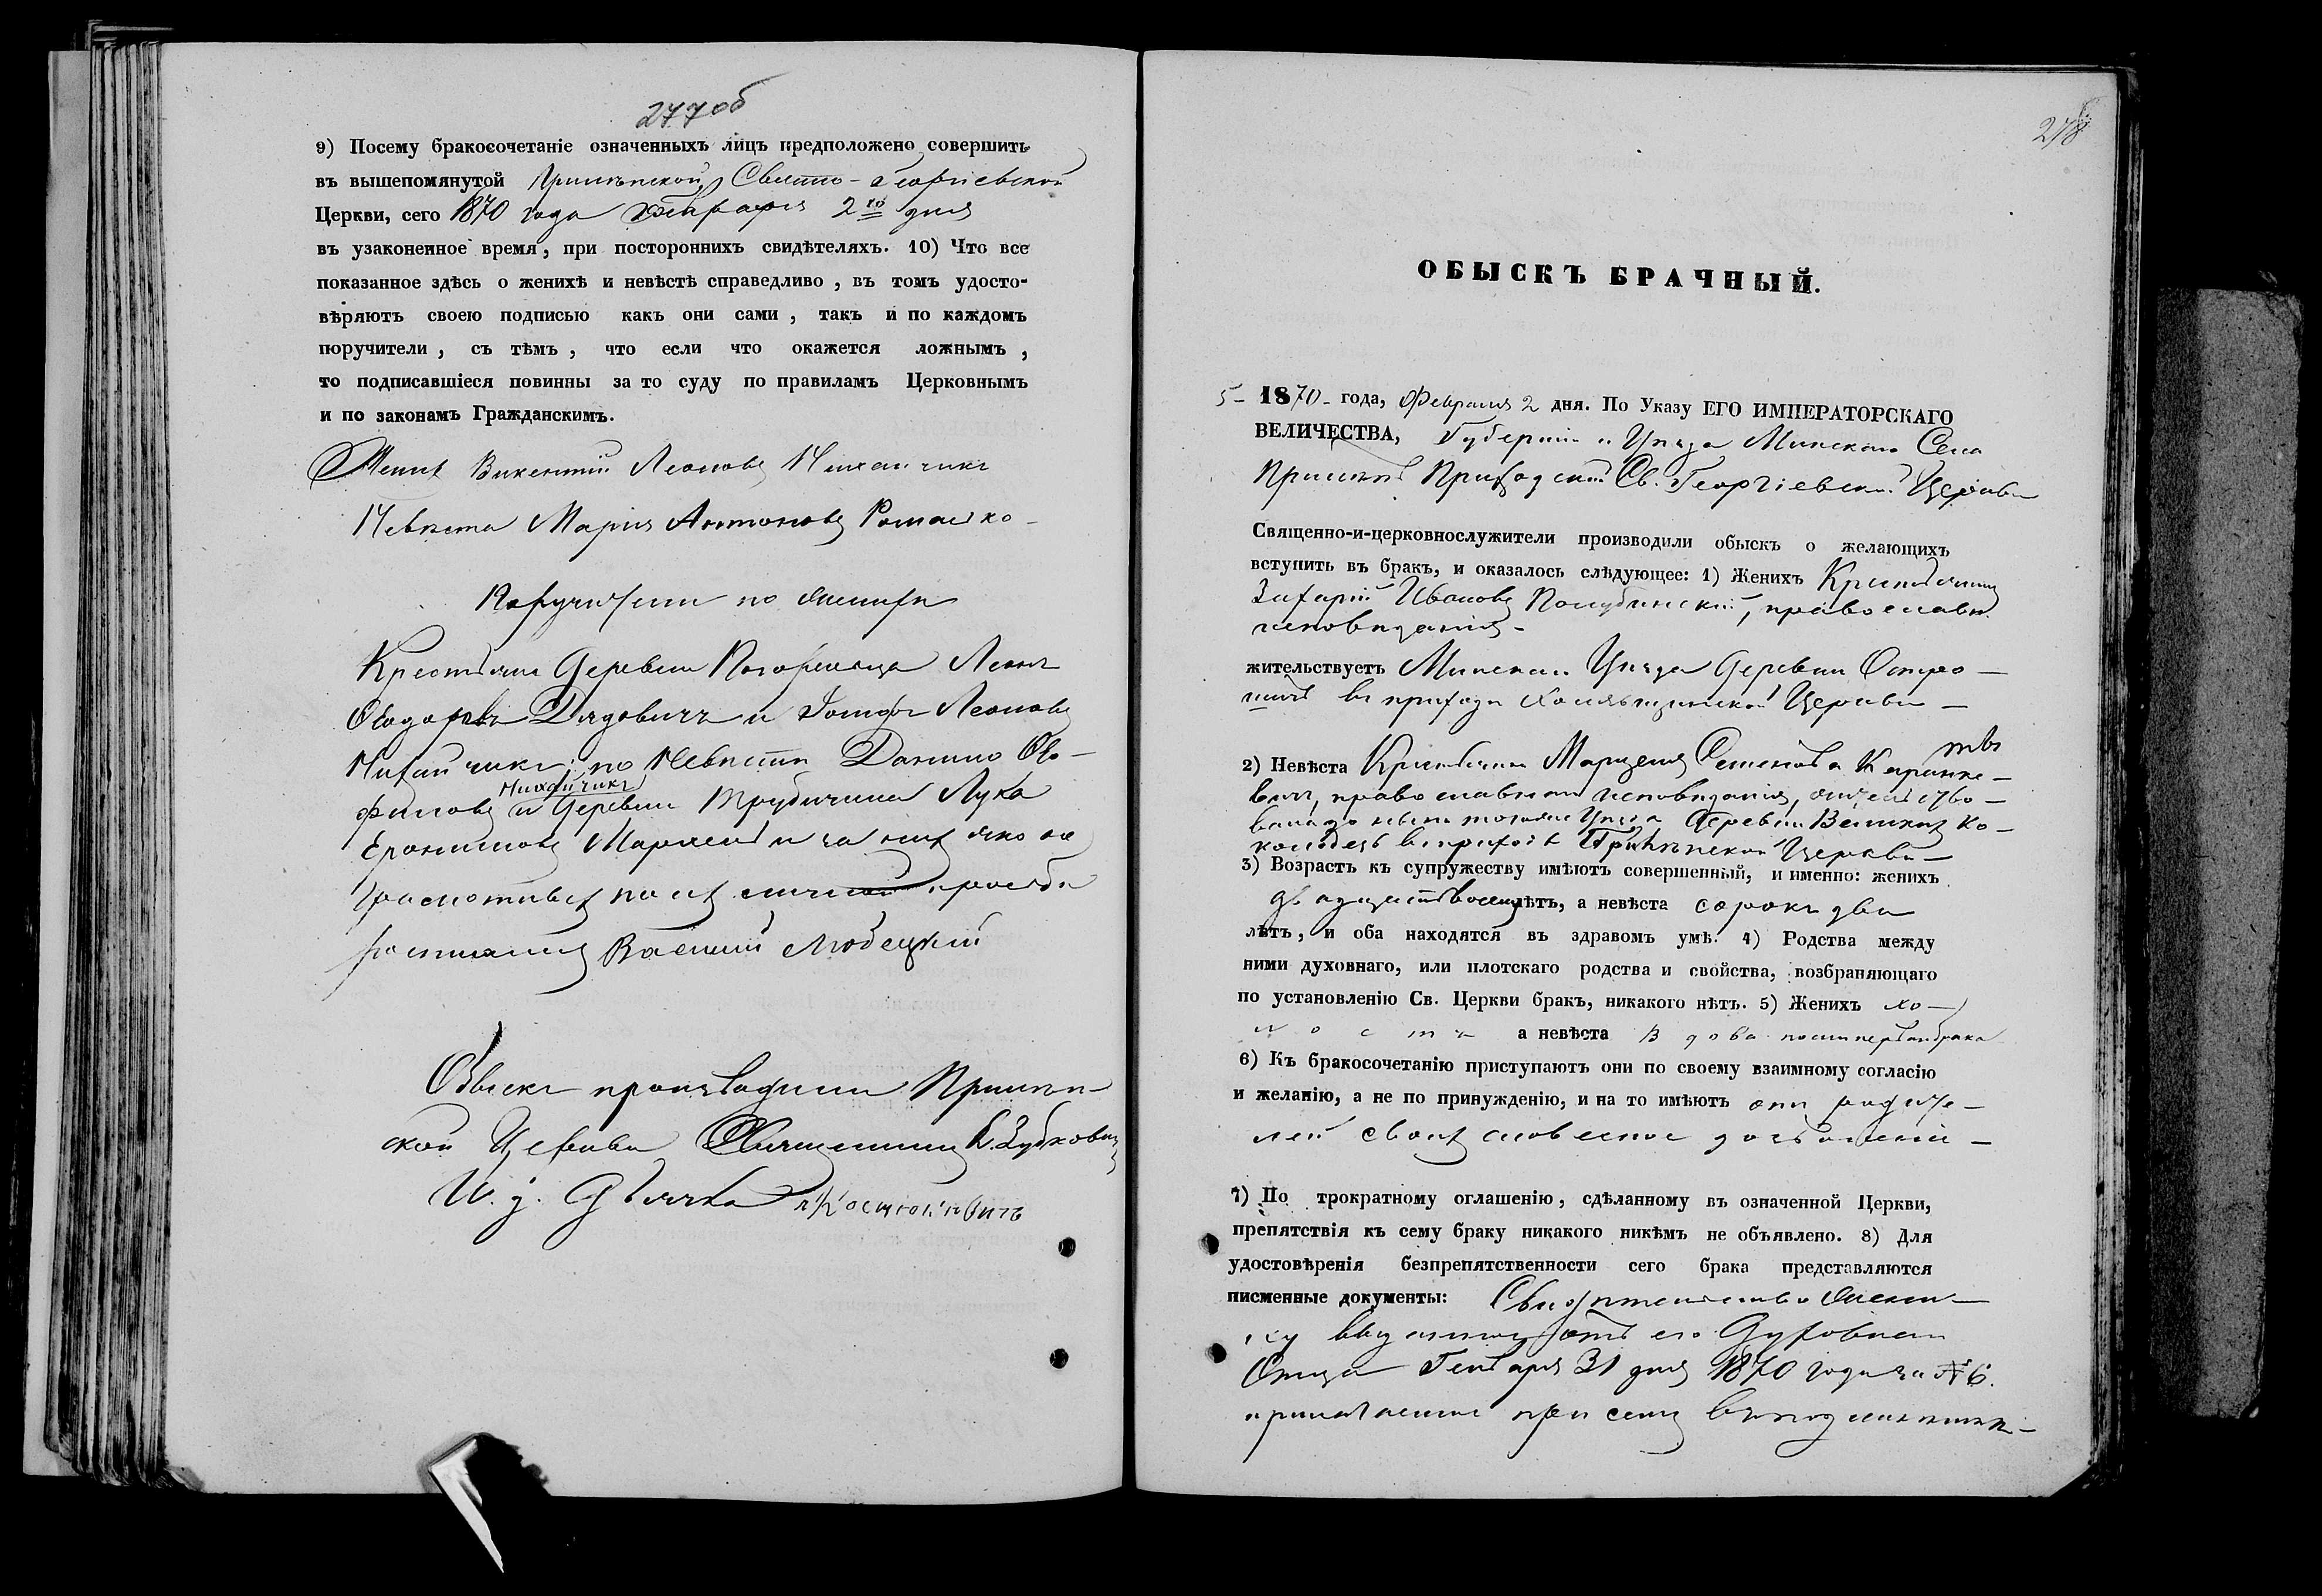 277об
9) Посему бракосочетаніе означенныхъ лицъ предположено совершить
въ вышепомянутой Прилѣпской Свято-Георгіевской
Церкви, сего 1870 года Февраля 2го дня
въ узаконенное время, при постороннихъ свидѣтеляхъ. 10) Что все
показанное здѣсь о женихѣ и невѣстѣ справедливо, въ томъ удосто-
вѣряютъ своею подписью какъ они сами, такъ и по каждомъ
поручители, съ тѣмъ, что если что окажется ложнымъ,
то подписавшіеся повинны за то суду по правиламъ Церковнымъ
и по законамъ Гражданскимъ.
Женихъ Викентій Леоновъ Михайчикъ
Невѣста Марія Антонова Ромашко
Поручители по женихѣ
Крестьяне Деревни Леонъ
Федоровъ Дядовичъ и Іосифъ Леоновъ
Михайчикъ; по Невѣстѣ Данило
Михайчикъ
и Деревни Лука
и за нихъ яко не
грамотныхъ по ихъ личной прозьбѣ
росписался Василій Любецкій
Обыскъ производили Прилѣп-
ской Церкви Священникъ К. Зубковичъ
И. д. Дьячка
278
ОБЫСКЪ БРАЧНЫЙ.
5- 1870 - года, Февраля 2 дня. По Указу ЕГО ИМПЕРАТОРСКАГО
ВЕЛИЧЕСТВА, Губерніи и Уѣзда Минскаго Села
Прилѣпъ Приходской Св. Георгіевской Церкви
Священно-и-церковнослужители производили обыскъ о желающихъ
вступить въ бракъ, и оказалось слѣдующее: 1) Женихъ Крестьянинъ
Захарій Ивановъ Полубинскій, православн.
исповѣданія -
жительствуетъ Минскаго Уѣзда Деревни Остро-
шичъ въ приходѣ Церкви -
2) Невѣста Крестьянка Марцеля Семенова
православнаго исповѣданія, жительство-
вала до нынѣ тогоже Уѣзда Деревни Великихъ Ко-
колодезь въ приходѣ Прилѣпской Церкви -
3) Возрастъ къ супружеству имѣютъ совершенный, и именно: женихъ
двадцать восемь лѣтъ, а невѣста сорокъ два
лѣтъ, и оба находятся въ здравомъ умѣ. 4) Родства между
ними духовнаго, или плотскаго родства и свойства, возбраняющаго
по установленію Св. Церкви бракъ, никакого нѣтъ. 5) Женихъ хо-
лостъ а невѣста вдова послѣ перваго брака
6) Къ бракосочетанію приступаютъ они по своему взаимному согласію
и желанію, а не по принужденію, и на то имѣютъ отъ родите-
лей своихъ словесное дозволеніе -
7) По трократному оглашенію, сдѣланному въ означенной Церкви,
препятствія къ сему браку никакого никѣмъ не объявлено. 8) Для
удостовѣренія безпрепятственности сего брака представляются
писменные документы: Свидѣтельство жени-
ху выданное отъ его Духовнаго
Отца Генваря 31 дня 1870 года за № 6.
приложенное при семъ въ подлинникѣ -